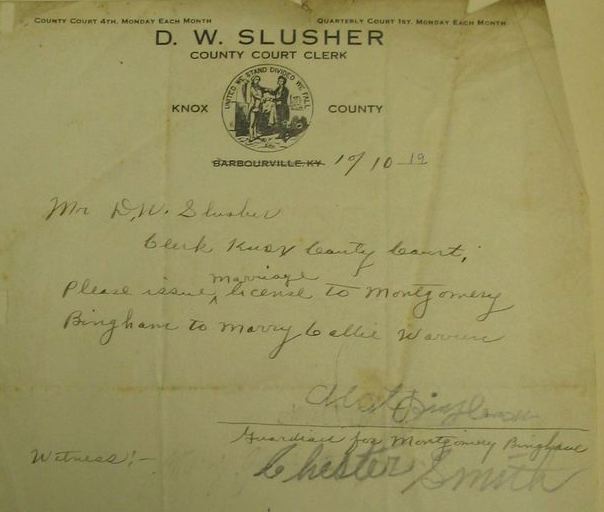 County Court 4th. Monday Each Month
Quarterly Court 1st. Monday Each Month
D. W. SLUSHER
COUNTY COURT CLERK
UNITED WE STAND DIVIDED WE FALL
KNOX COUNTY
BARBOURVILLE, KY. 10/10 19
Mr D.W. Slusher
Clerk Knox County Court;
Please issue marriage license to Montgomery
Bingham to marry Callie Warren
Bingham
Guardian for Montgomery Bingham
Witness:-
Chester Smith